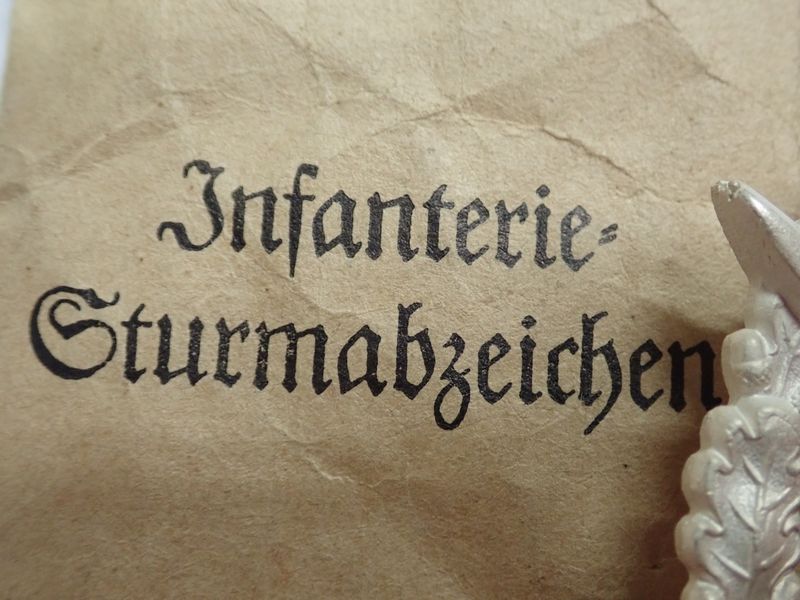 Infanterie-
Sturmabzeichen